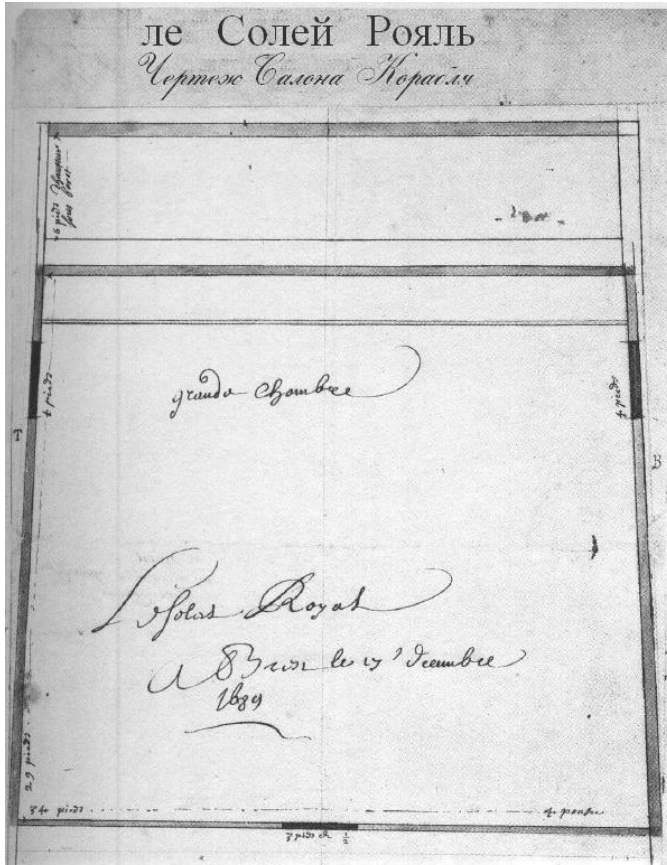 ле Солей Рояль
Чертеж Салона Корабля
4 pieds
4 pieds
grande Chambre
B
Le Soleil Royal
A Brest le 17e decembre
1689
29 pieds
34 pieds
4 pouces
3 pieds et 1/2